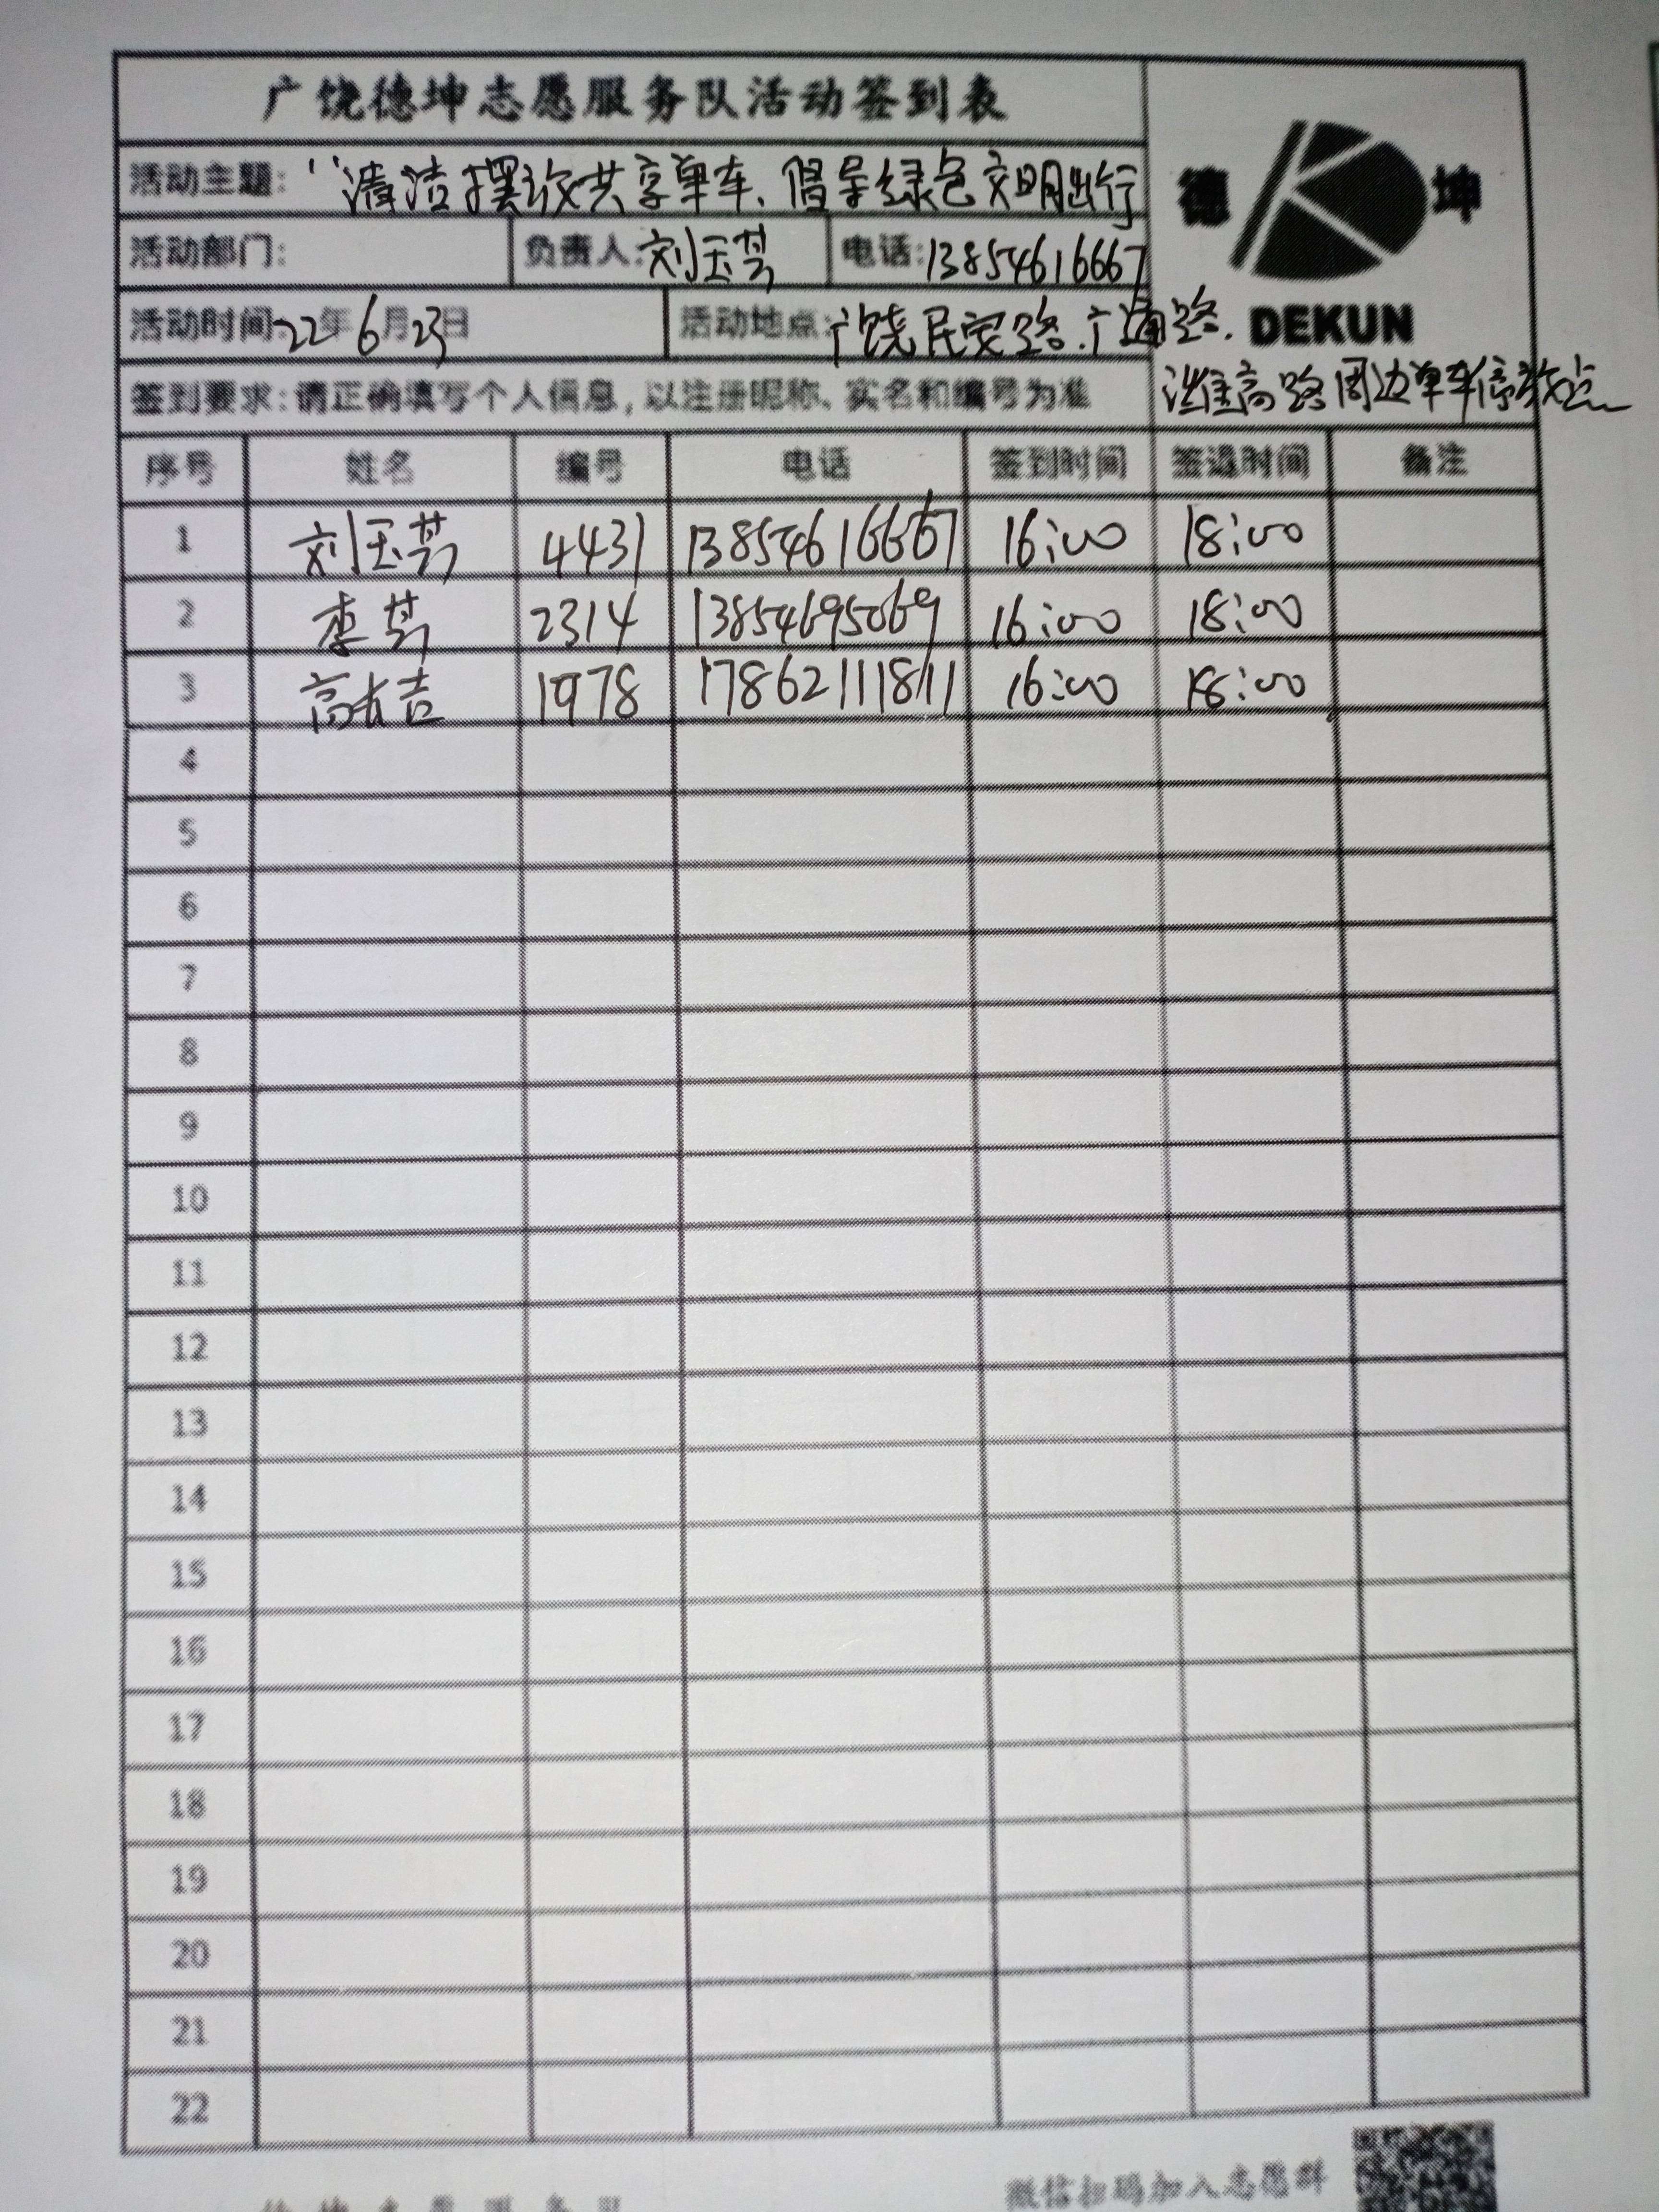 广饶德坤志愿服务队活动签到表
活动主题："清洁摆放共享单车、倡导绿色文明出行
德 坤
活动部门： 负责人：刘玉芳 电话：13854616667
活动时间：22年6月23日 活动地点：广饶民安路.广通路.
DEKUN
周边单车停放点
签到要求：请正确填写个人信息，以注册昵称、实名和编号为准
序号 姓名 编号 电话 签到时间 签退时间 备注
1 刘玉芳 4431 13854616667 16:00 18:00
2 李芳 2314 13854695069 16:00 18:00
3 高吉 1978 17862111811 16:00 18:00
4
5
6
7
8
9
10
11
12
13
14
15
16
17
18
19
20
21
22
微信扫码加入志愿群